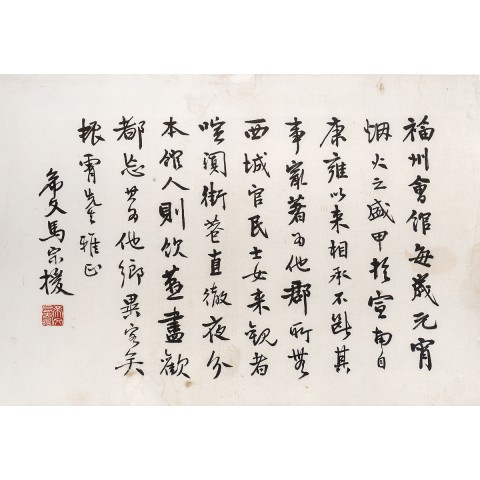 福州會館每歲元宵
烟火之盛甲於宣南自
康雍以来相承不斷其
事最著為他郡所無
西城官民士女来觀者
喧闐街巷直徹夜分
本館人則飲燕盡歡
都忘其為他鄉異客矣
振霄先生雅正
希文馬宗援